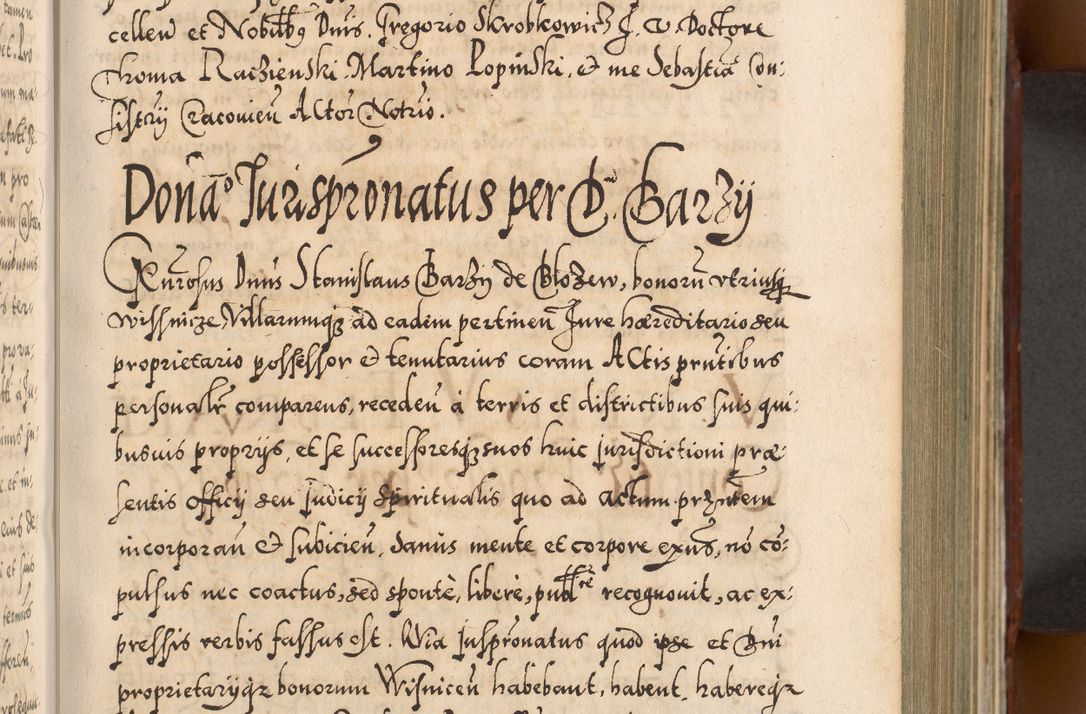 cellen et Nobilibus Dnis. Gregorio Skrobkowicz J. V. Doctore
Thoma Raczienski Martino Lopinski, et me Sebastia Con:
sistrij Cracovien Actor Notrio.
Dona͞o Jurispronatus per D. Barzij
Generosus Dnus Stanislaus Barzij de Blozew, bonoru utriusq
Wissnicze, Villarumq ad eadem pertinen Jure hæreditario seu
proprietario possessor et tenutarius coram Actis prntibus
personalr comparens, receden à terris et districtibus suis qui:
busuis proprijs, et se successoresq suos huic Jurisdictioni præ:
sentis officij seu Judicij spiritualis quo ad actum przntem
incorporan et subicien, sanus mente et corpore exns, no co:
pulsus nec coactus, sed sponte, libere, publce recognouit, ac ex:
pressis verbis fassus est. Quia Juspronatus quod ipse et Dni
proprietarijq bonorum Wisnicen habebant, habent, habereq